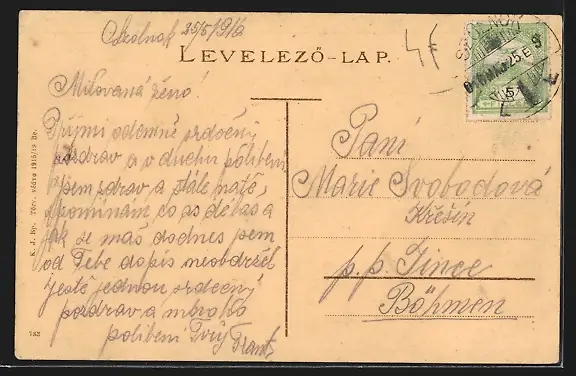 Szolnok 25/5 1916
LEVELEZŐ-LAP.
Milovaná ženo!
Přijmi odemně srdečný
pozdrav a v duchu políbení
jsem zdrav a stále na tě
spomínám co as děláš a
jak se máš dodnes jsem
od Tebe dopis neobdržel
ještě jednou srdečný
pozdrav a mnoho
políbení Tvůj Frant.
Paní
Marie Svobodová
Křešín
p.p. Jince
Böhmen
K. J. Bp. Törv. védve 1915/18